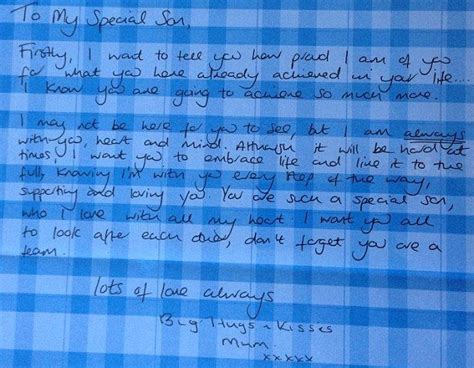 To My Special Son,
Firstly, I want to tell you how proud I am of you
for what you have already achieved in your life...
I know you are going to achieve so much more.
I may not be here for you to see, but I am always
with you, heart and mind. Although it will be hard at
times I want you to embrace life and live it to the
full, knowing I'm with you every step of the way,
supporting and loving you You are such a special son,
who I love with all my heart. I want you all
to look after each other, don't forget you are a
team.
lots of love always
Big Hugs & Kisses
Mum
xxxxx